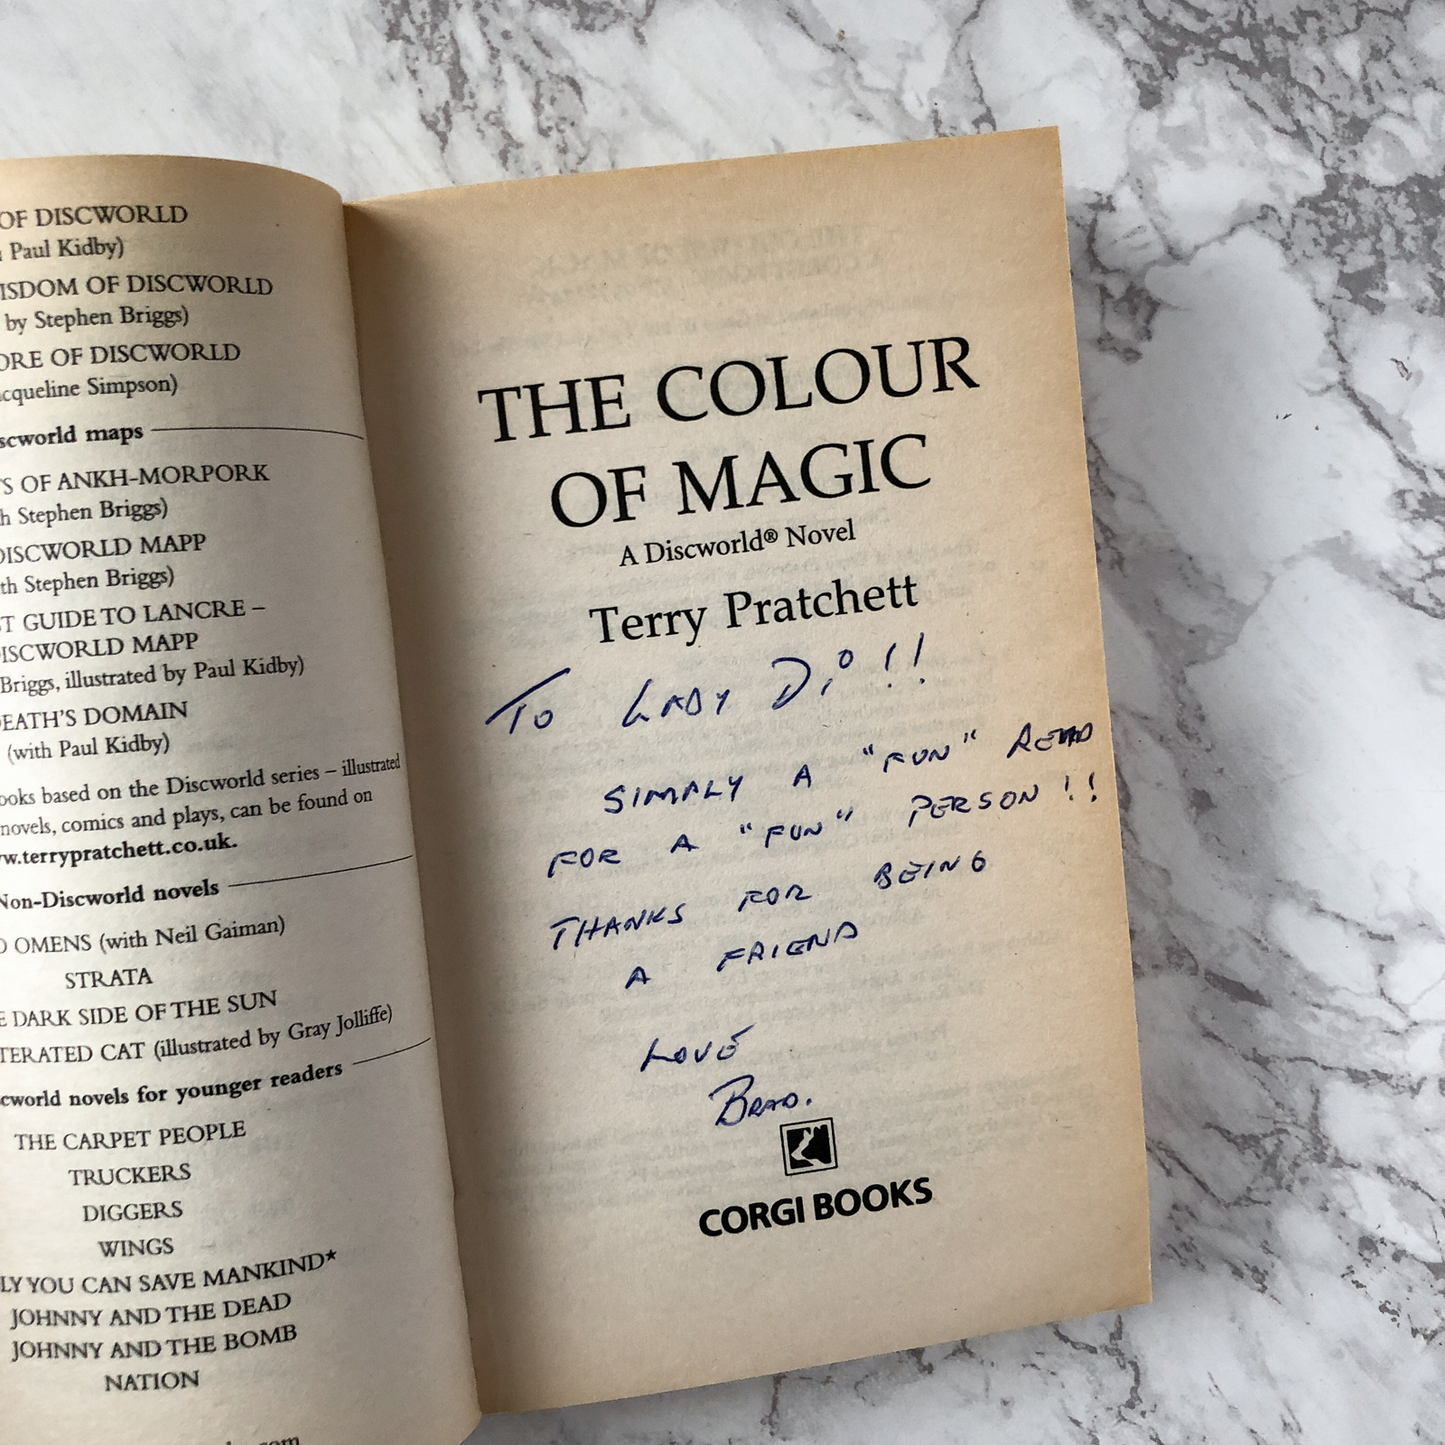 OF DISCWORLD
Paul Kidby)
ISDOM OF DISCWORLD
by Stephen Briggs)
ORE OF DISCWORLD
cqueline Simpson)
scworld maps
S OF ANKH-MORPORK
h Stephen Briggs)
DISCWORLD MAPP
th Stephen Briggs)
ST GUIDE TO LANCRE –
DISCWORLD MAPP
Briggs, illustrated by Paul Kidby)
DEATH'S DOMAIN
(with Paul Kidby)
ooks based on the Discworld series – illustrated
novels, comics and plays, can be found on
w.terrypratchett.co.uk.
Non-Discworld novels
D OMENS (with Neil Gaiman)
STRATA
E DARK SIDE OF THE SUN
TERATED CAT (illustrated by Gray Jolliffe)
cworld novels for younger readers
THE CARPET PEOPLE
TRUCKERS
DIGGERS
WINGS
LY YOU CAN SAVE MANKIND*
JOHNNY AND THE DEAD
JOHNNY AND THE BOMB
NATION
THE COLOUR
OF MAGIC
A Discworld® Novel
Terry Pratchett
TO LADY Di!!
SIMPLY A "FUN" READ
FOR A "FUN" PERSON!!
THANKS FOR BEING
A FRIEND
LOVE
BRAD.
CORGI BOOKS